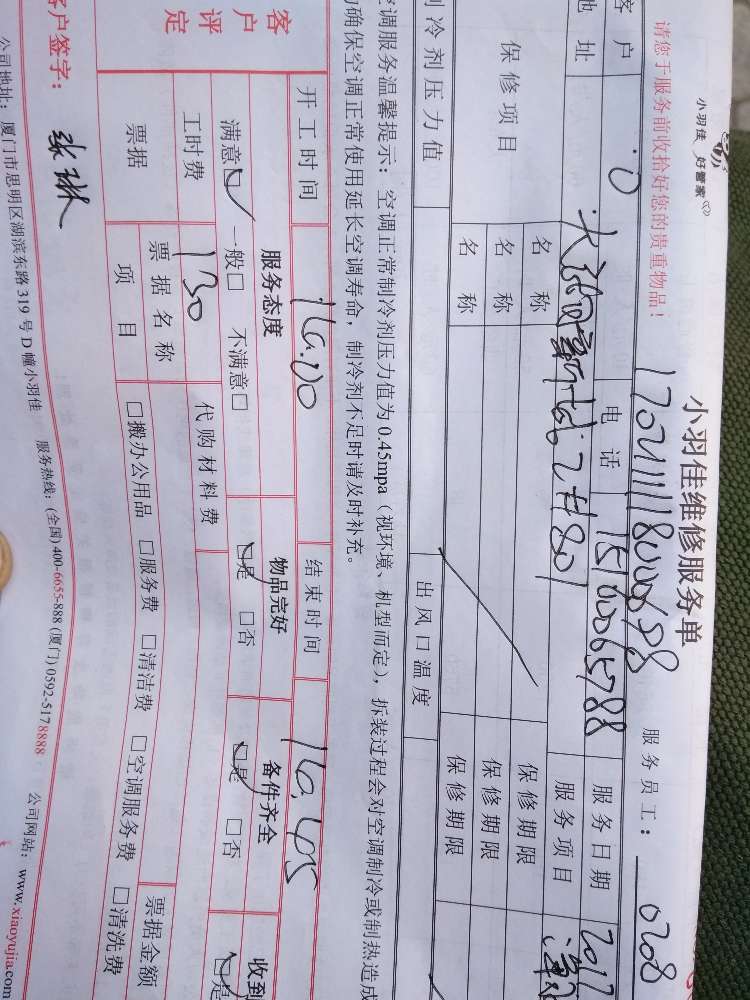 小羽佳 好管家
小羽佳维修服务单
请您于服务前收拾好您的贵重物品！
服务员工： 0208
客户 电话 15100065788 服务日期 2017
地址 2#801 服务项目
保修项目 名称 保修期限
名称 保修期限
名称 保修期限
制冷剂压力值 出风口温度
空调服务温馨提示：空调正常制冷剂压力值为0.45mpa（视环境、机型而定），拆装过程会对空调制冷或制热造成
确保空调正常使用延长空调寿命，制冷剂不足时请及时补充。
开工时间 16:00 结束时间 16:45
客户评定 服务态度 物品完好 备件齐全 收到
满意☑ 一般□ 不满意□ ☑是 □否 ☑是 □否 ☑是
工时费 130 代购材料费
票据 票据名称 票据金额
项目 □搬办公用品 □服务费 □清洁费 □空调服务费 □清洗费
客户签字： 张琳
公司地址：厦门市思明区湖滨东路319号D幢小羽佳 服务热线：(全国)400-6655-888 (厦门)0592-5178888 公司网站：www.xiaoyujia.com